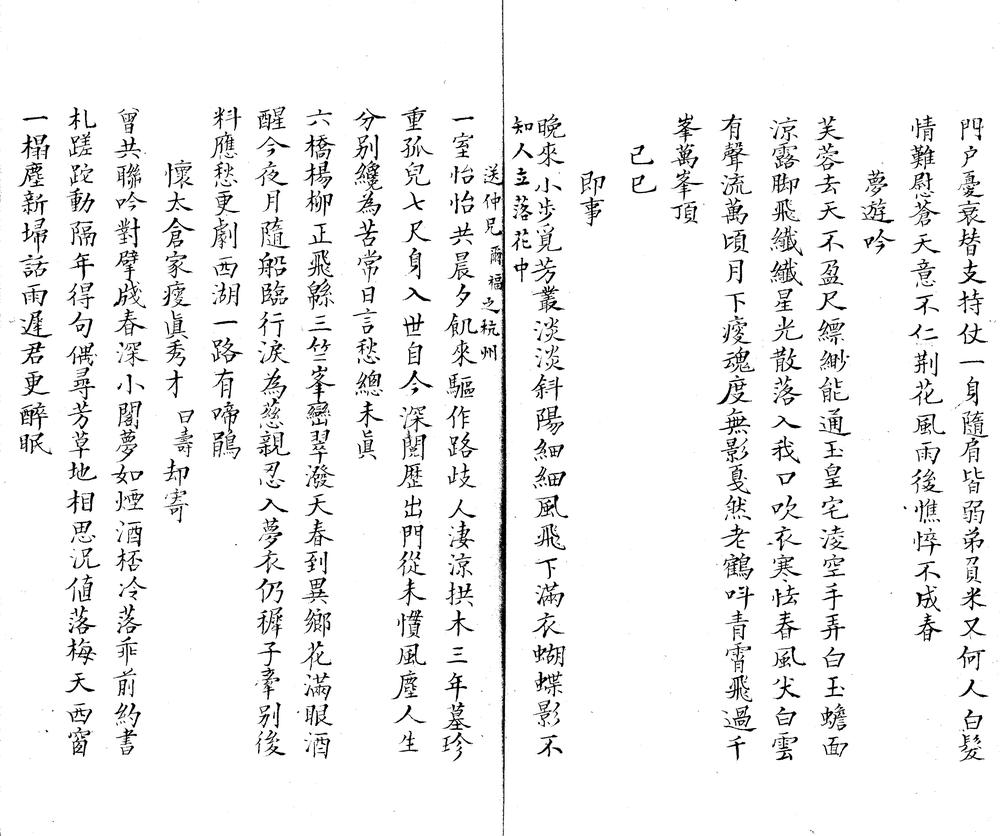 門戶憂衰替支持仗一身隨肩皆弱弟負米又何人白髮
情難慰蒼天意不仁荆花風雨後憔悴不成春
夢遊吟
芙蓉去天不盈尺縹緲能通玉皇宅淩空手弄白玉蟾面
凉露脚飛纖纖星光散落入我口吹衣寒怯春風尖白雲
有聲流萬頃月下瘦魂度無影戛然老鶴呌青霄飛過千
峯萬峯頂
己巳
即事
晚來小步覓芳叢淡淡斜陽細細風飛下滿衣蝴蝶影不
知人立落花中
送仲兄爾福之杭州
一室怡怡共晨夕飢來驅作路歧人淒涼拱木三年墓珍
重孤兒七尺身入世自今深閱歷出門從未慣風塵人生
分別纔為苦常日言愁總未眞
六橋楊柳正飛緜三竺峯巒翠潑天春到異鄉花滿眼酒
醒今夜月隨船臨行淚為慈親忍入夢衣仍穉子牽別後
料應愁更劇西湖一路有啼鵑
懷太倉家瘦眞秀才曰壽却寄
曾共聯吟對擘牋春深小閣夢如煙酒桮冷落乖前約書
札蹉跎動隔年得句偶尋芳草地相思況値落梅天西窗
一榻塵新埽話雨遲君更醉眠